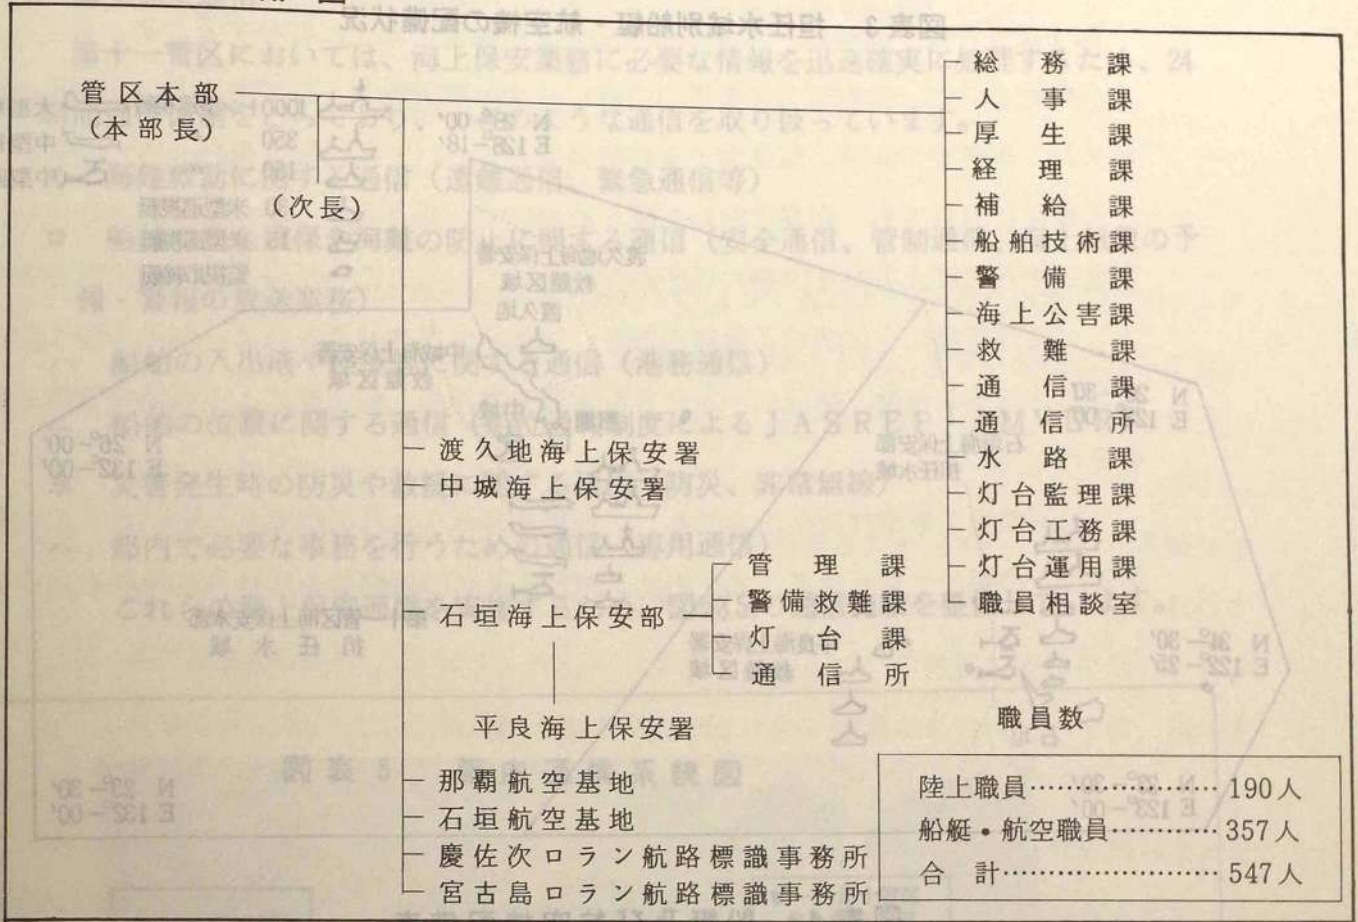 管区本部
(本部長)
(次長)
総務課
人事課
厚生課
経理課
補給課
船舶技術課
警備課
海上公害課
救難課
通信課
通信所
水路課
灯台監理課
灯台工務課
灯台運用課
職員相談室
渡久地海上保安署
中城海上保安署
石垣海上保安部
管理課
警備救難課
灯台課
通信所
平良海上保安署
那覇航空基地
石垣航空基地
慶佐次ロラン航路標識事務所
宮古島ロラン航路標識事務所
職員数
陸上職員………………190人
船艇・航空職員…………357人
合計……………………547人